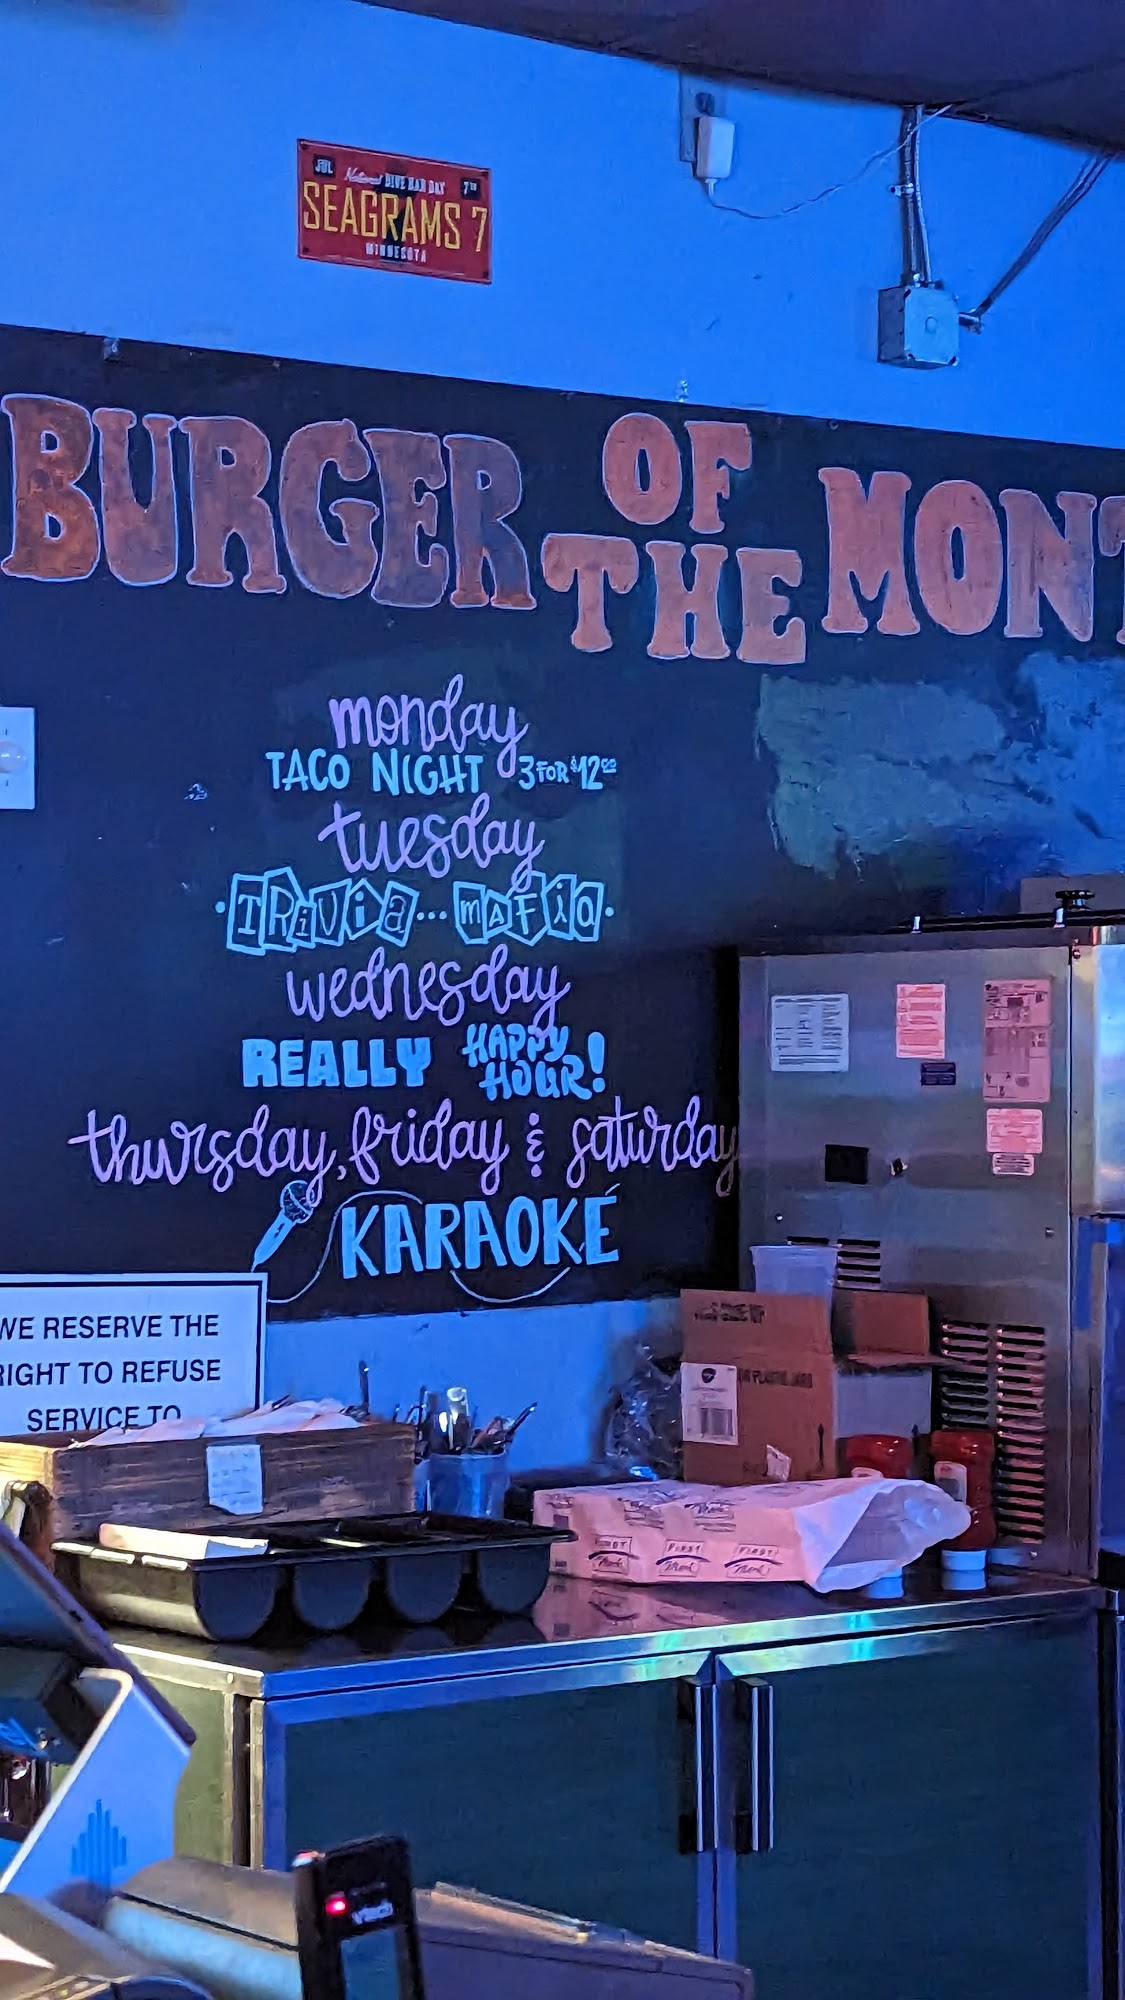 JUL National DIVE BAR DAY 7TH
SEAGRAMS 7
MINNESOTA
BURGER OF THE MONT
monday
TACO NIGHT 3 FOR $12.00
tuesday
TRiViA... MAFiA
wednesday
REALLY HAPPY HOUR!
thursday, friday & saturday
KARAOKE
WE RESERVE THE
RIGHT TO REFUSE
SERVICE TO
FIRST FIRST FIRST
Mark Mark Mark